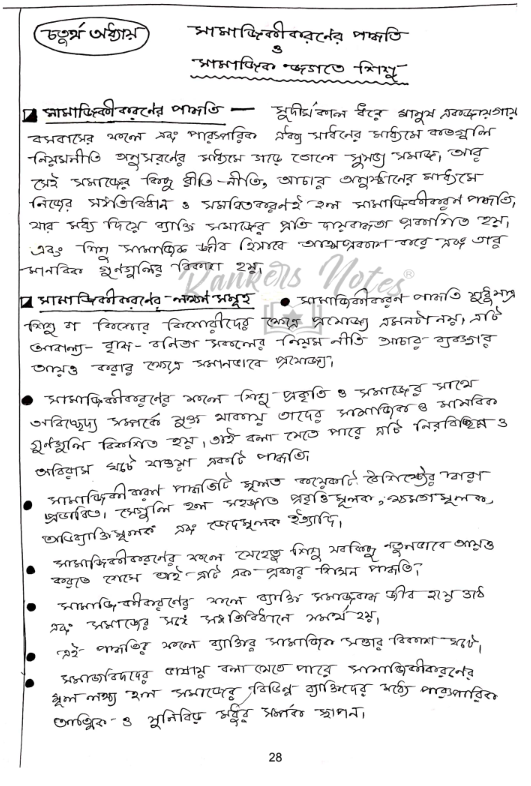 চতুর্থ অধ্যায়
সামাজিকীকরনের পদ্ধতি
ও
সামাজিক জগতে শিশু
সামাজিকীকরনের পদ্ধতি — সুদীর্ঘকাল ধরে মানুষ একজায়গায়
বসবাসের ফলে এবং পারস্পরিক ঐক্য সাধনের মাধ্যমে কতগুলি
নিয়মনীতি অনুসরনের মাধ্যমে গড়ে তোলে সুসভ্য সমাজ, আর
সেই সমাজের কিছু রীতি-নীতি, আচার অনুষ্ঠানের মাধ্যমে
নিজের সঙ্গতিবিধান ও সমাবিতকরনই হল সামাজিকীকরন পদ্ধতি,
যার মধ্য দিয়ে ব্যক্তি সমাজের প্রতি দায়বদ্ধতা প্রকাশিত হয়,
এবং শিশু সামাজিক জীব হিসাবে আত্মপ্রকাশ করে এবং তার
মানবিক গুনগুলির বিকাশ হয়।
Rankers Notes®
সামাজিকীকরনের লক্ষন সমূহ ● সামাজিকীকরন পদ্ধতি শুধুমাত্র
শিশু বা কিশোর কিশোরীদের ক্ষেত্রে প্রযোজ্য এমনটা নয়, এটি
আবাল্য- বৃদ্ধ- বনিতা সকলের নিয়ম নীতি আচার ব্যবহার
আয়ত্ত করার ক্ষেত্রে সমানভাবে প্রযোজ্য।
● সামাজিকীকরনের ফলে শিশু প্রকৃতি ও সমাজের সাথে
অবিচ্ছেদ্য সম্পর্কে যুক্ত থাকায় তাদের সামাজিক ও মানবিক
গুনগুলি বিকশিত হয়, তাই বলা যেতে পারে এটি নিরবিচ্ছিন্ন ও
অবিরাম ঘটে যাওয়া একটি পদ্ধতি
● সামাজিকীকরন পদ্ধতিটি মূলত কয়েকটি বৈশিষ্ট্যের দ্বারা
প্রভাবিত। সেগুলি হল সহজাত প্রবৃত্তি মূলক, ক্ষমতামূলক,
অভিব্যক্তিমূলক এবং জেদমূলক ইত্যাদি,
● সামাজিকীকরনের ফলে যেহেতু শিশু সবকিছু নতুনভাবে আয়ত্ত
করতে শেখে তাই এটি এক প্রকার শিখন পদ্ধতি,
● সামাজিকীকরনের ফলে ব্যক্তি সমাজবদ্ধ জীব হয়ে ওঠে
এবং সমাজের সঙ্গে সঙ্গতিবিধানে সমর্থ হয়,
● এই পদ্ধতির ফলে ব্যক্তির সামাজিক সত্তার বিকাশ ঘটে,
● সমাজবিদদের ভাষায় বলা যেতে পারে সামাজিকীকরনের
মূল লক্ষ্য হল সমাজের বিভিন্ন ব্যক্তিদের মধ্যে পারস্পরিক
আত্মিক ও সুনিবিড় মধুর সম্পর্ক স্থাপন।
28